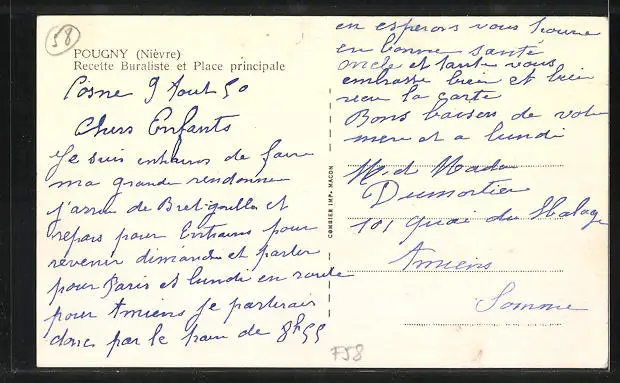 58
POUGNY (Nièvre)
Recette Buraliste et Place principale
Cosne 9 Aout 50
Chers Enfants
Je suis entrain de faire
ma grande randonnée
j'arrive de et
repars pour Entrains pour
revenir dimanche et partir
pour Paris et lundi en route
pour Amiens je partirai
donc par le train de 8h55
en esperons vous trouver
en bonne santé
oncle et tante vous
embrasse bien et bien
recu la carte
Bons baisers de votre
mere et a lundi
COMBIER IMP. MACON
M. et Madam
Dumortier
101 quai du Halage
Amiens
Somme
F58